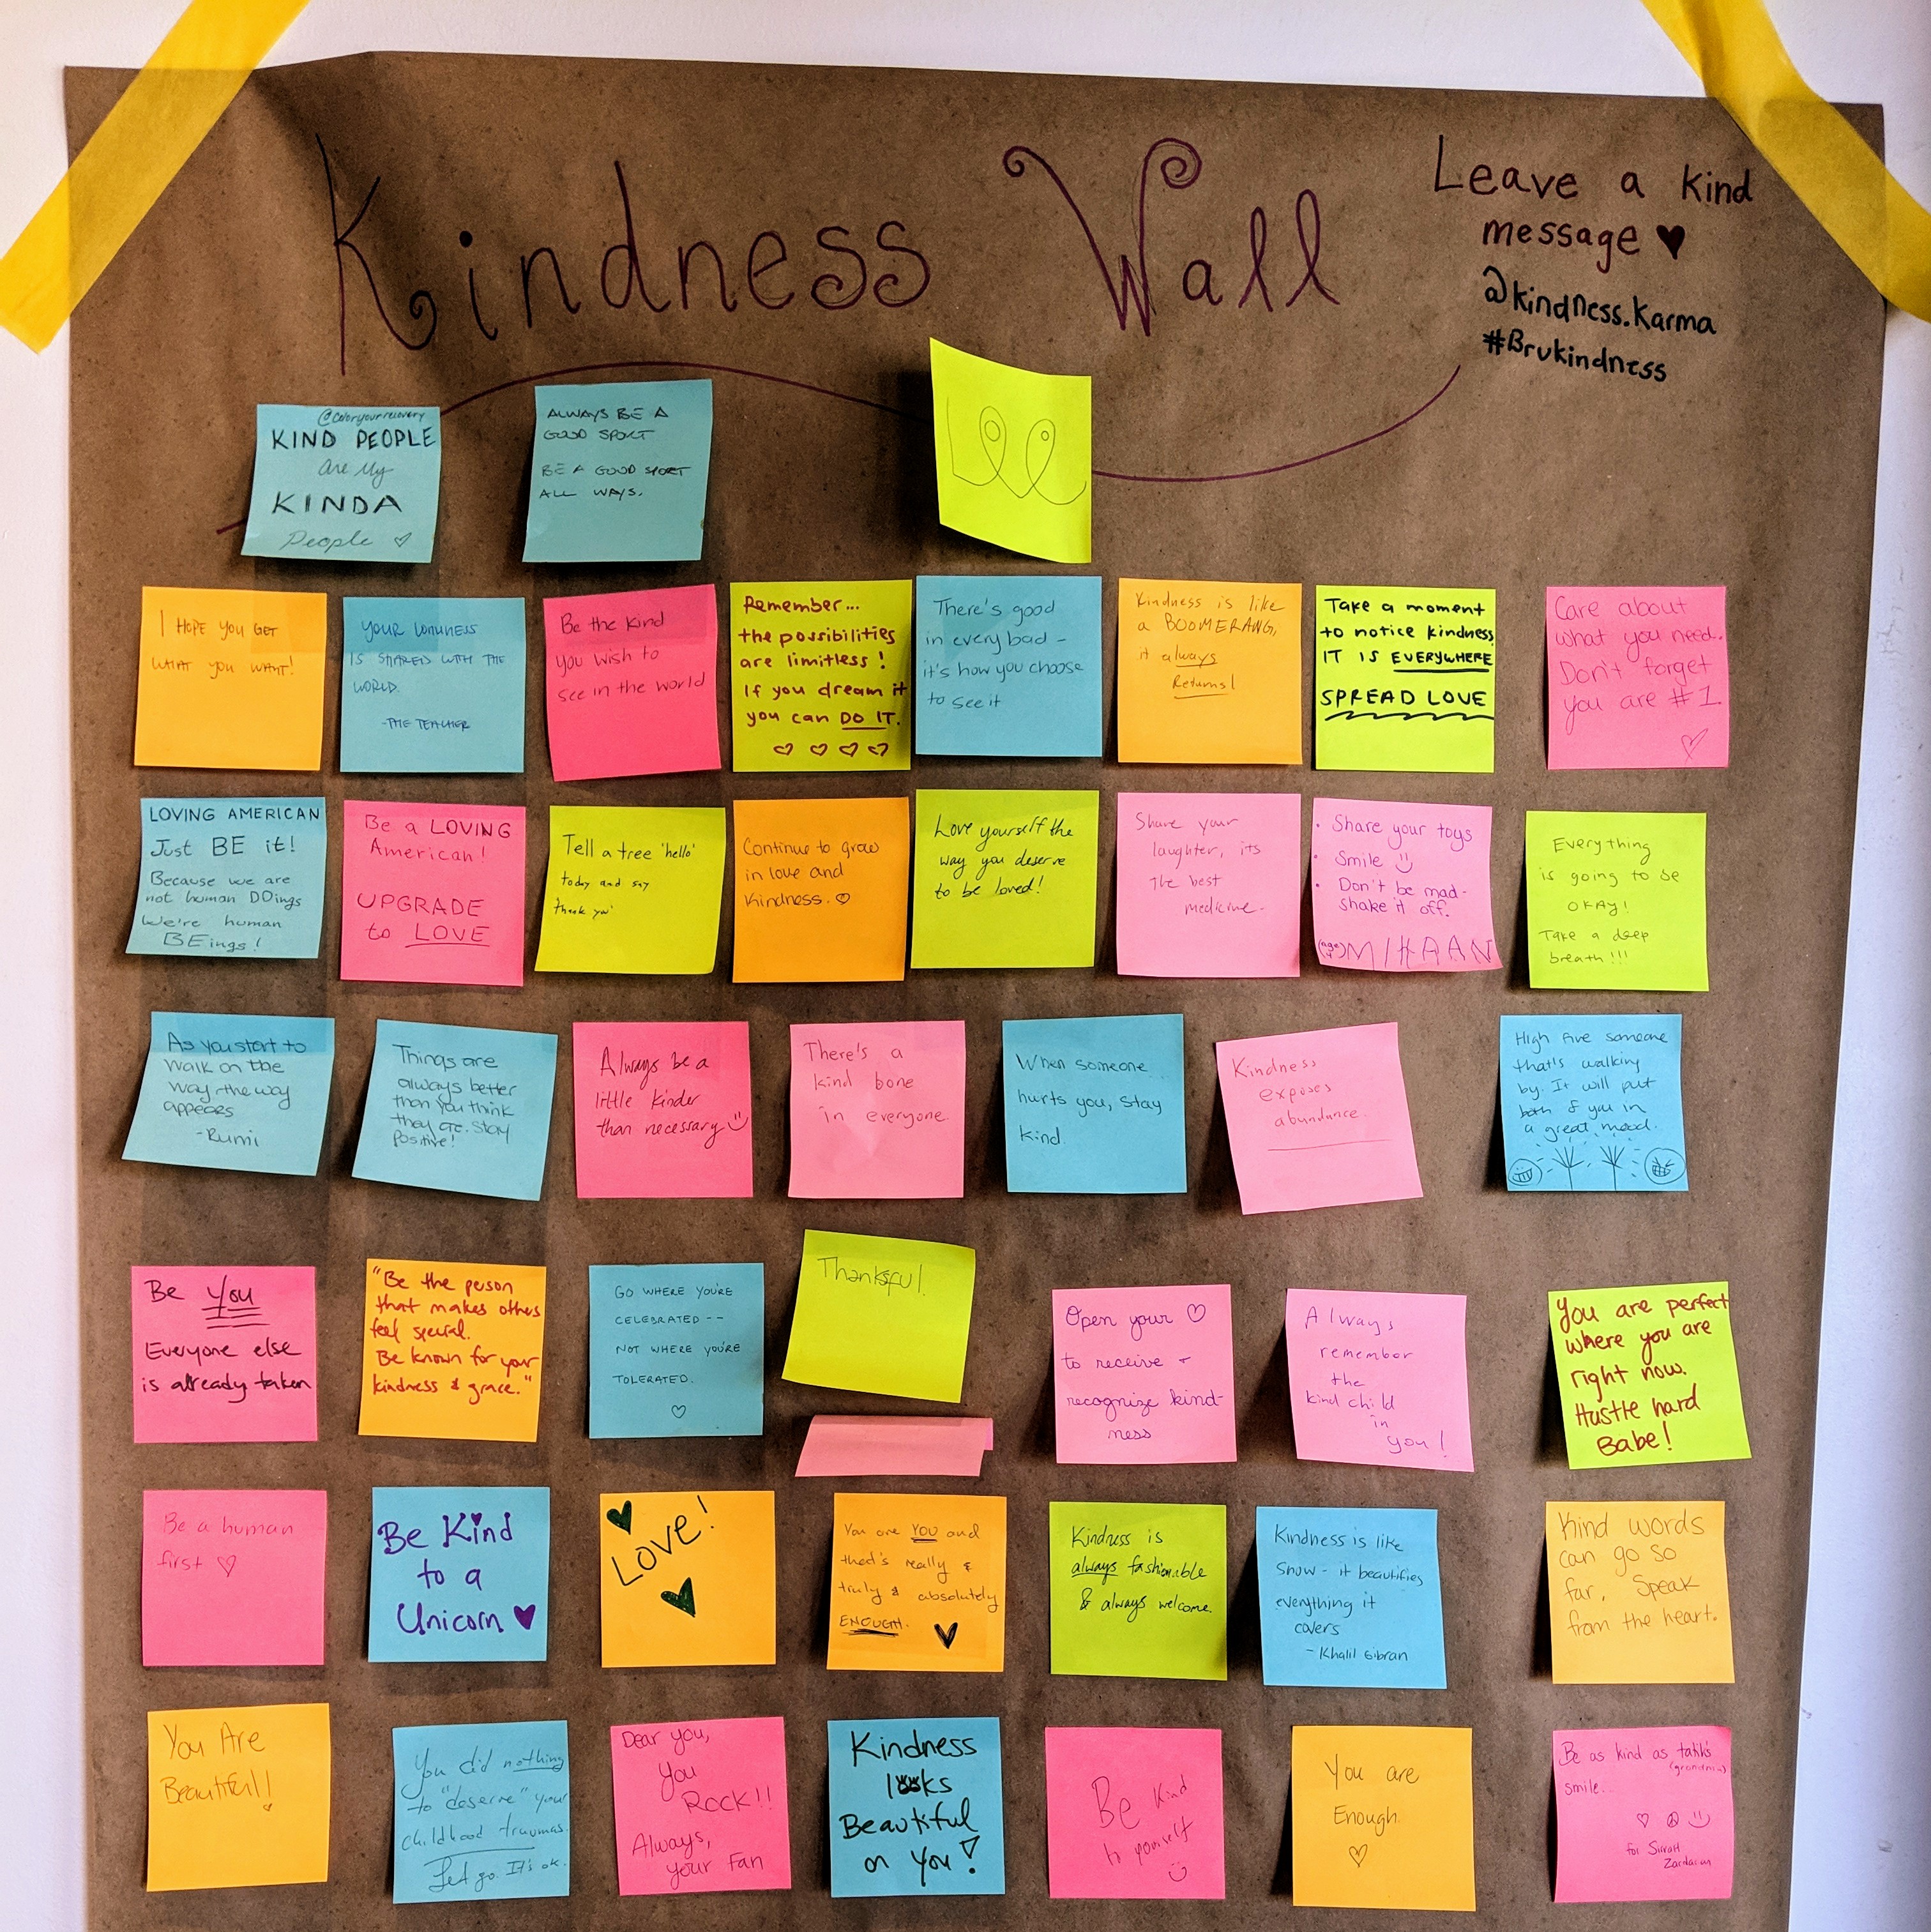 Kindness Wall
Leave a kind
message ♥
@kindness.karma
#Brukindness
@coloryourrecovery
KIND PEOPLE
are my
KINDA
People ♡
ALWAYS BE A
GOOD SPORT
BE A GOOD SPORT
ALL WAYS.
I HOPE YOU GET
WHAT YOU WANT!
YOUR
IS SHARED WITH THE
WORLD.
-THE TEACHER
Be the kind
you wish to
see in the world
Remember...
the possibilities
are limitless!
If you dream it
you can DO IT.
♡ ♡ ♡ ♡
There's good
in every bad -
it's how you choose
to see it
Kindness is like
a BOOMERANG,
it always
Returns!
Take a moment
to notice kindness
IT IS EVERYWHERE
SPREAD LOVE
Care about
what you need.
Don't forget
you are #1
♡
LOVING AMERICAN
Just BE it!
Because we are
not human DOings
We're human
BEings!
Be a LOVING
American!
UPGRADE
to LOVE
Tell a tree 'hello'
today and say
'thank you'
Continue to grow
in love and
kindness. ♡
Love yourself the
way you deserve
to be loved!
Share your
laughter, its
the best
medicine.
• Share your toys
• Smile ☺
• Don't be mad-
shake it off.
MIHAAN
Everything
is going to be
OKAY!
Take a deep
breath!!!
As you start to
walk on the
way the way
appears
-Rumi
Things are
always better
than you think
they are. Stay
Positive!
Always be a
little kinder
than necessary ☺
There's a
kind bone
in everyone
When someone
hurts you, stay
kind.
Kindness
exposes
abundance.
High five someone
that's walking
by. It will put
both of you in
a great mood.
Be You
Everyone else
is already taken
"Be the person
that makes others
feel special.
Be known for your
kindness & grace."
GO WHERE YOU'RE
CELEBRATED --
NOT WHERE YOU'RE
TOLERATED.
♡
Thankful
Open your ♡
to receive +
recognize kind-
ness
Always
remember
the
kind child
in
you!
You are perfect
where you are
right now.
Hustle hard
Babe!
Be a human
first ♡
Be Kind
to a
Unicorn ♥
♥
LOVE!
♥
You are YOU and
that's really &
truly & absolutely
ENOUGH. ♥
Kindness is
always fashionable
& always welcome.
Kindness is like
snow - it beautifies
everything it
covers
- Khalil Gibran
Kind words
can go so
far, Speak
from the heart.
You Are
Beautiful!
You did nothing
to "deserve" your
childhood traumas.
Let go. It's ok.
Dear you,
You
Rock!!
Always,
your Fan
Kindness
looks
Beautiful
on You!
Be kind
to yourself
☺
You are
Enough.
♡
Be as kind as tatik's
(grandma)
smile.
♡ ☮ ☺
for